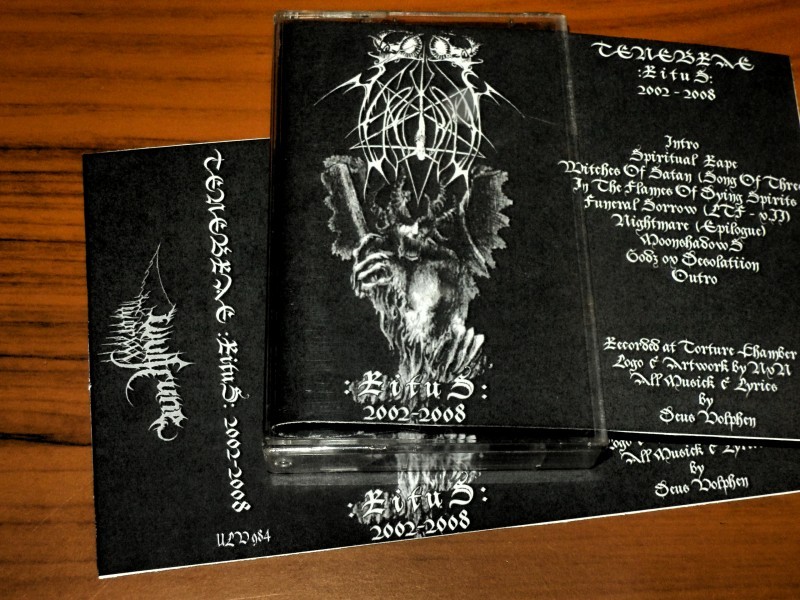 Wulfrune
TENEBRAE :RituS: 2002-2008
:RituS:
2002-2008
:RituS:
2002-2008
TENEBRAE
:RituS:
2002 - 2008
Intro
Spiritual Rape
Witches Of Satan (Song Of Three
In The Flames Of Dying Spirits
Funeral Sorrow (LTF - vII)
Nightmare (Epilogue)
MoonshadowS
Godz ov Desolatiion
Outro
Recorded at Torture Chamber
Logo & Artwork by
All Musick & Lyrics
by
Deus Volphen
All Musick &
by
Deus Volphen